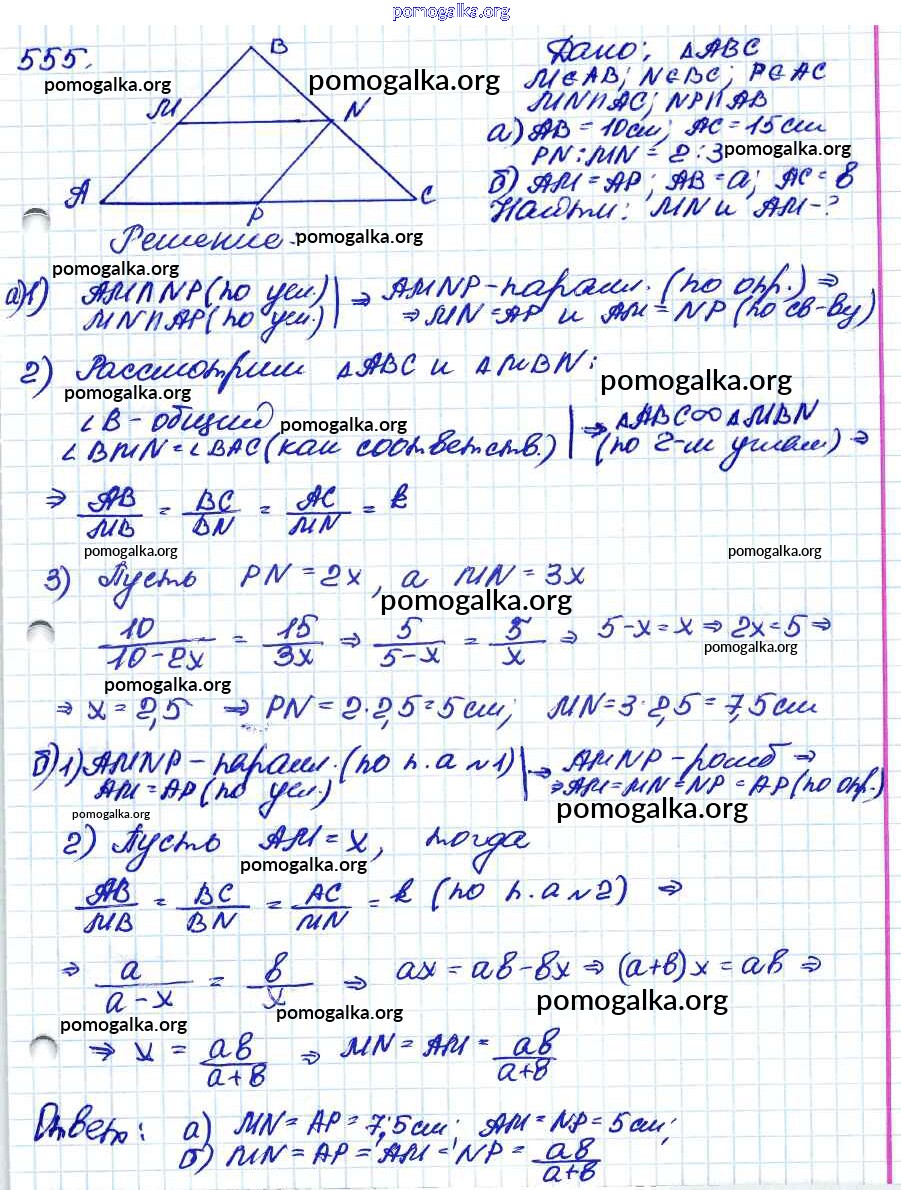 pomogalka.org
555.
B
Дано: △ABC
pomogalka.org
pomogalka.org
M∈AB; N∈BC; P∈AC
M
N
MN∥AC; NP∥AB
а) AB = 10см; AC = 15см
PN:MN = 2:3
pomogalka.org
б) AM = AP; AB = a; AC = b
A
P
C
Найти: MN и AM - ?
Решение.
pomogalka.org
pomogalka.org
а)1) AM∥NP (по усл.) | ⇒ AMNP - парал. (по опр.) ⇒
MN∥AP (по усл.) | ⇒ MN = AP и AM = NP (по св-ву)
2) Рассмотрим △ABC и △MBN:
pomogalka.org
pomogalka.org
∠B - общий
pomogalka.org
⇒ △ABC∞△MBN
∠BMN = ∠BAC (как соответств.) | (по 2-м углам) ⇒
⇒ AB/MB = BC/BN = AC/MN = k
pomogalka.org
pomogalka.org
3) Пусть PN = 2x, а MN = 3x
pomogalka.org
10/(10-2x) = 15/3x ⇒ 5/(5-x) = 5/x ⇒ 5-x = x ⇒ 2x = 5 ⇒
pomogalka.org
pomogalka.org
⇒ x = 2,5 ⇒ PN = 2·2,5 = 5см; MN = 3·2,5 = 7,5см
б) 1) AMNP - парал. (по п. а №1) | ⇒ AMNP - ромб ⇒
AM = AP (по усл.) | ⇒ AM = MN = NP = AP (по опр.)
pomogalka.org
pomogalka.org
2) Пусть AM = x, тогда
pomogalka.org
AB/MB = BC/BN = AC/MN = k (по п. а №2) ⇒
⇒ a/(a-x) = b/x ⇒ ax = ab - bx ⇒ (a+b)x = ab ⇒
pomogalka.org
pomogalka.org
pomogalka.org
⇒ x = ab/(a+b) ⇒ MN = AM = ab/(a+b)
Ответ: а) MN = AP = 7,5см; AM = NP = 5см;
б) MN = AP = AM = NP = ab/(a+b)